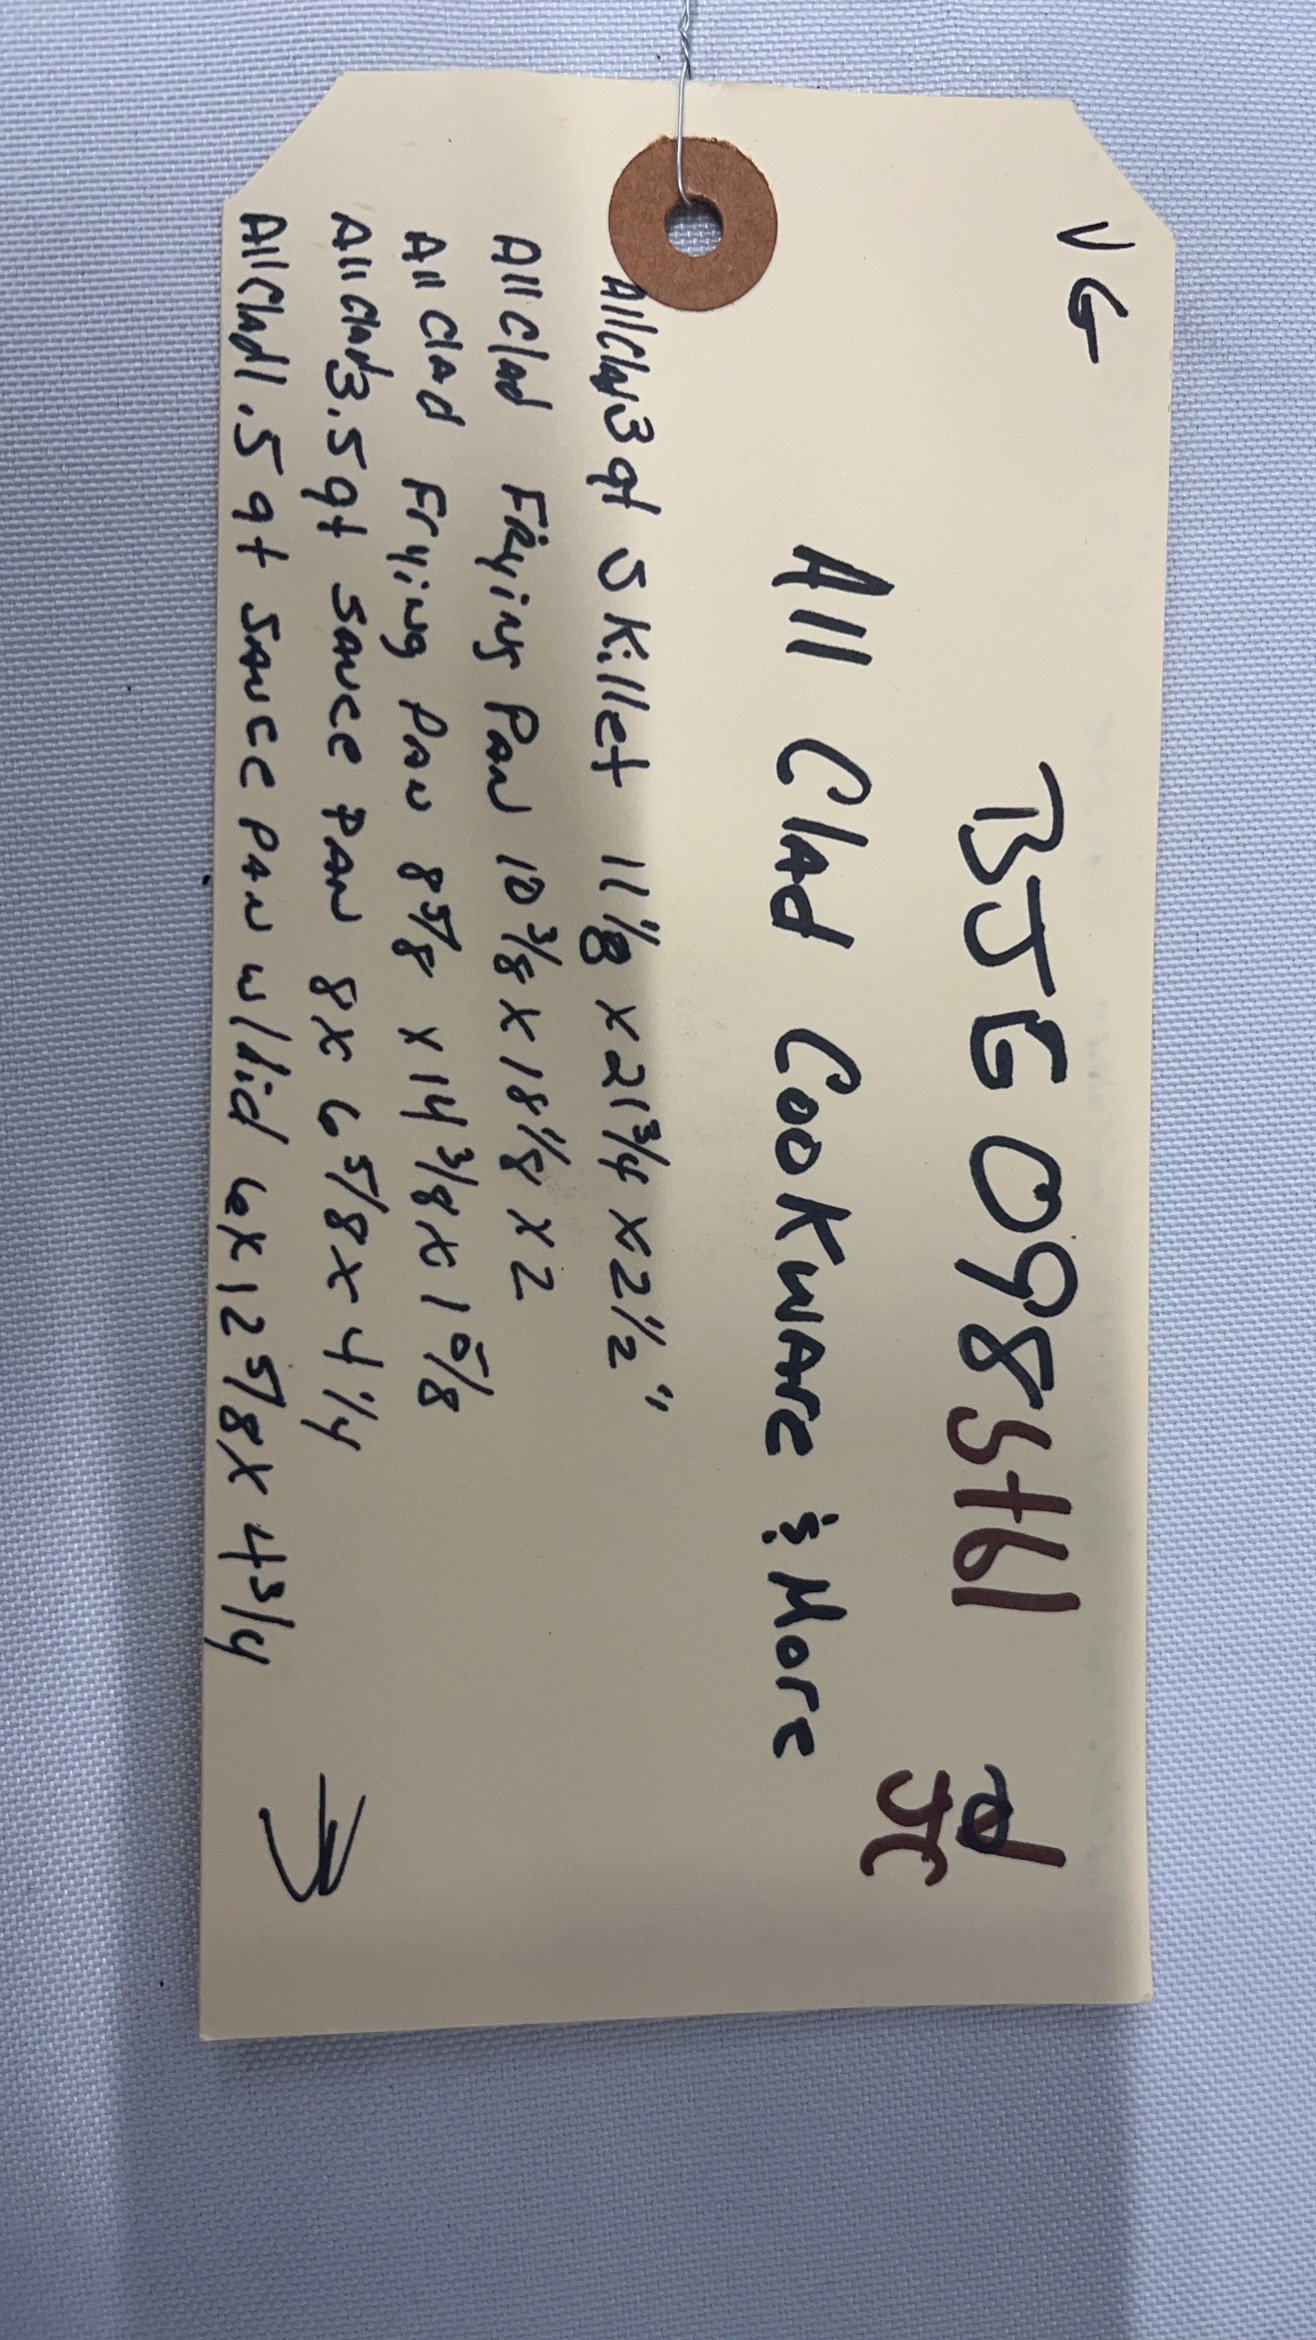 VG
BJE098 5461
All Clad Cookware & More
JC
All Clad 3qt Skillet 11 1/8 x 21 3/4 x 2 1/2"
All Clad Frying Pan 10 3/8 x 18 1/8 x 2
All Clad Frying Pan 8 5/8 x 14 3/8 x 1 5/8
All Clad 3.5qt Sauce Pan 8 x 6 5/8 x 4 1/4
All Clad 1.5 qt Sauce Pan w/lid 6 x 12 5/8 x 4 3/4